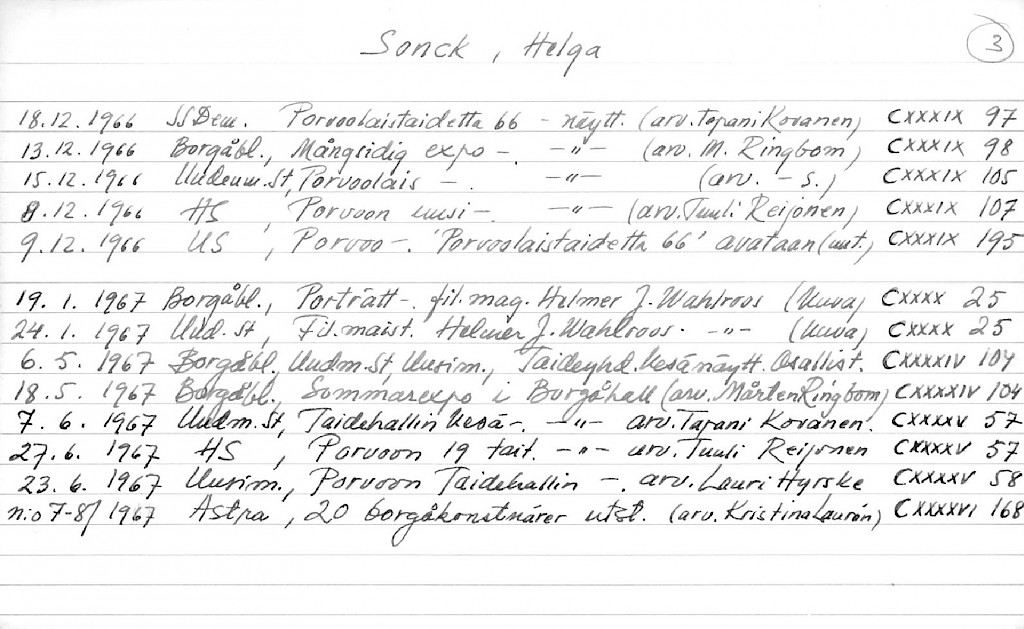 Sonck, Helga
3
18.12.1966 SSDem. Porvoolaistaidetta 66 - näytt. (arv. Tapani Kovanen) CXXXIX 97
13.12.1966 Borgåbl., Mångsidig expo -. -"- (arv. M. Ringbom) CXXXIX 98
15.12.1966 Uudenm. St, Porvoolais -. -"- (arv. - s.) CXXXIX 105
8.12.1966 HS, Porvoon uusi -. -"- (arv. Tuuli Reijonen) CXXXIX 107
9.12.1966 US, Porvoo -. 'Porvoolaistaidetta 66' avataan (uut.) CXXXIX 195
19.1.1967 Borgåbl., Porträtt -. fil.mag. Helmer J. Wahlroos (kuva) CXXXX 25
24.1.1967 Uud. St, Fil.maist. Helmer J. Wahlroos. -"- (kuva) CXXXX 25
6.5.1967 Borgåbl., Uudm. St, Uusim., Taideyhd. kesänäytt. Osallist. CXXXXIV 104
18.5.1967 Borgåbl., Sommarexpo i Borgåhall (arv. Mårten Ringbom) CXXXXIV 104
7.6.1967 Uudm. St, Taidehallin kesä -. -"- arv. Tapani Kovanen. CXXXXV 57
27.6.1967 HS, Porvoon 19 tait. -"- arv. Tuuli Reijonen CXXXXV 57
23.6.1967 Uusim., Porvoon Taidehallin -. arv. Lauri Hyrske CXXXXV 58
n:o 7-8/1967 Astra, 20 borgåkonstnärer utst. (arv. Kristina Laurén) CXXXXVI 168